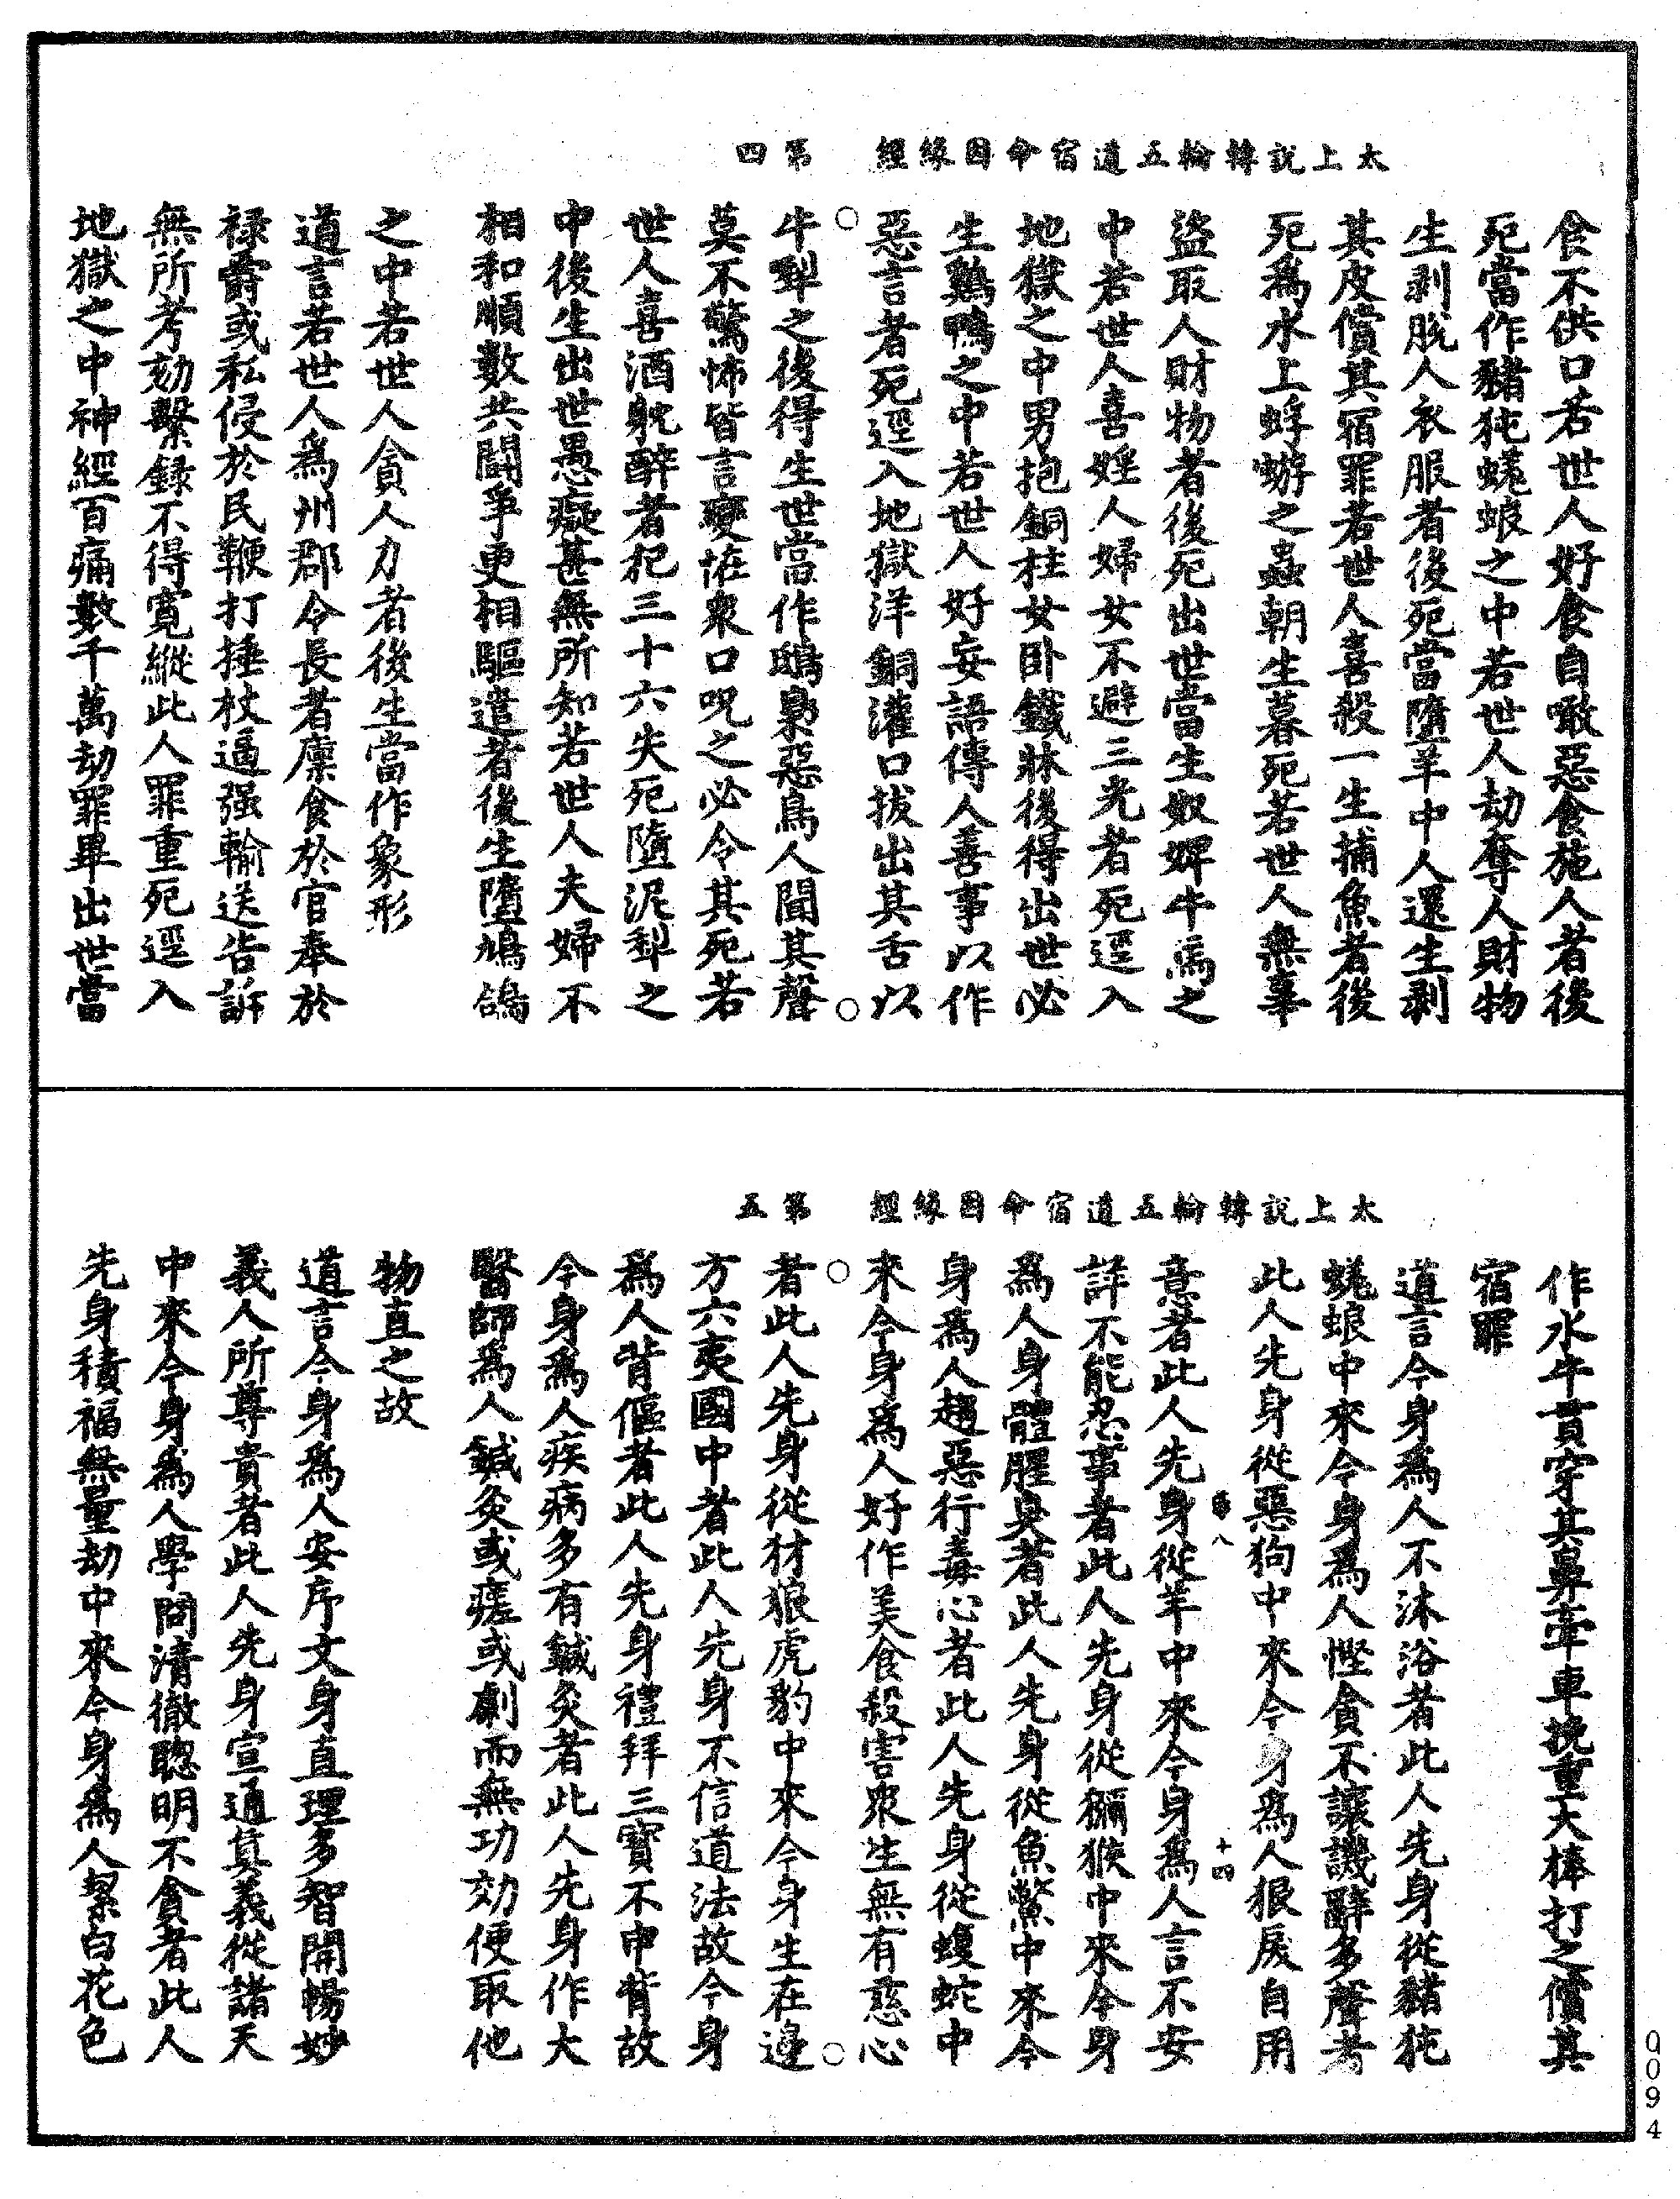 太上說轉輪五道宿命因緣經　第四
食不供口若世人好食自噉惡食施人者後
死當作豬㹠蜣蜋之中若世人劫奪人財物
生剥脫人衣服者後死當墮羊中人還生剥
其皮償其宿罪若世人喜殺一生捕魚者後
死爲水上蜉蝣之蟲朝生暮死若世人無事
盜取人財物者後死出世當生奴婢牛馬之
中若世人喜婬人婦女不避三光者死逕入
地獄之中男抱銅柱女卧鐵牀後得出世必
生鷄鴨之中若世人好妄語傳人善事以作
惡言者死逕入地獄洋銅灌口拔出其舌以
牛犁之後得生世當作鴟梟惡鳥人聞其聲
莫不驚怖皆言變怪衆口呪之必令其死若
世人喜酒躭醉者犯三十六失死墮泥犁之
中後生出世愚癡甚無所知若世人夫婦不
相和順數共鬭爭更相驅遣者後生墮鳩鴿
之中若世人貪人力者後生當作象形
道言若世人爲州郡令長者廩食於官奉於
禄爵或私侵於民鞭打捶杖逼强輸送告訴
無所考劾繫録不得寬縱此人罪重死逕入
地獄之中神經百痛數千萬劫罪畢出世當
太上說轉輪五道宿命因緣經　第五
作水牛貫穿其鼻牽車挽重大棒打之償其
宿罪
道言今身爲人不沐浴者此人先身從豬㹠
蜣蜋中來今身爲人慳貪不讓譏辭多聲者
此人先身從惡狗中來今身爲人狠戾自用
意者此人先身從羊中來今身爲人言不安
詳不能忍事者此人先身從獼猴中來今身
爲人身體腥臭者此人先身從魚鱉中來今
身爲人趨惡行毒心者此人先身從蝮蛇中
來今身爲人好作美食殺害衆生無有慈心
者此人先身從犲狼虎豹中來今身生在邊
方六夷國中者此人先身不信道法故今身
爲人背傴者此人先身禮拜三寶不申背故
今身爲人疾病多有鍼灸者此人先身作大
醫師爲人鍼灸或瘥或劇而無功効便取他
物直之故
道言今身爲人安序文身直理多智開暢妙
義人所尊貴者此人先身宣通真義從諸天
中來今身爲人學問清徹聰明不貪者此人
先身積福無量劫中來今身爲人絜白花色
八
十四
0094